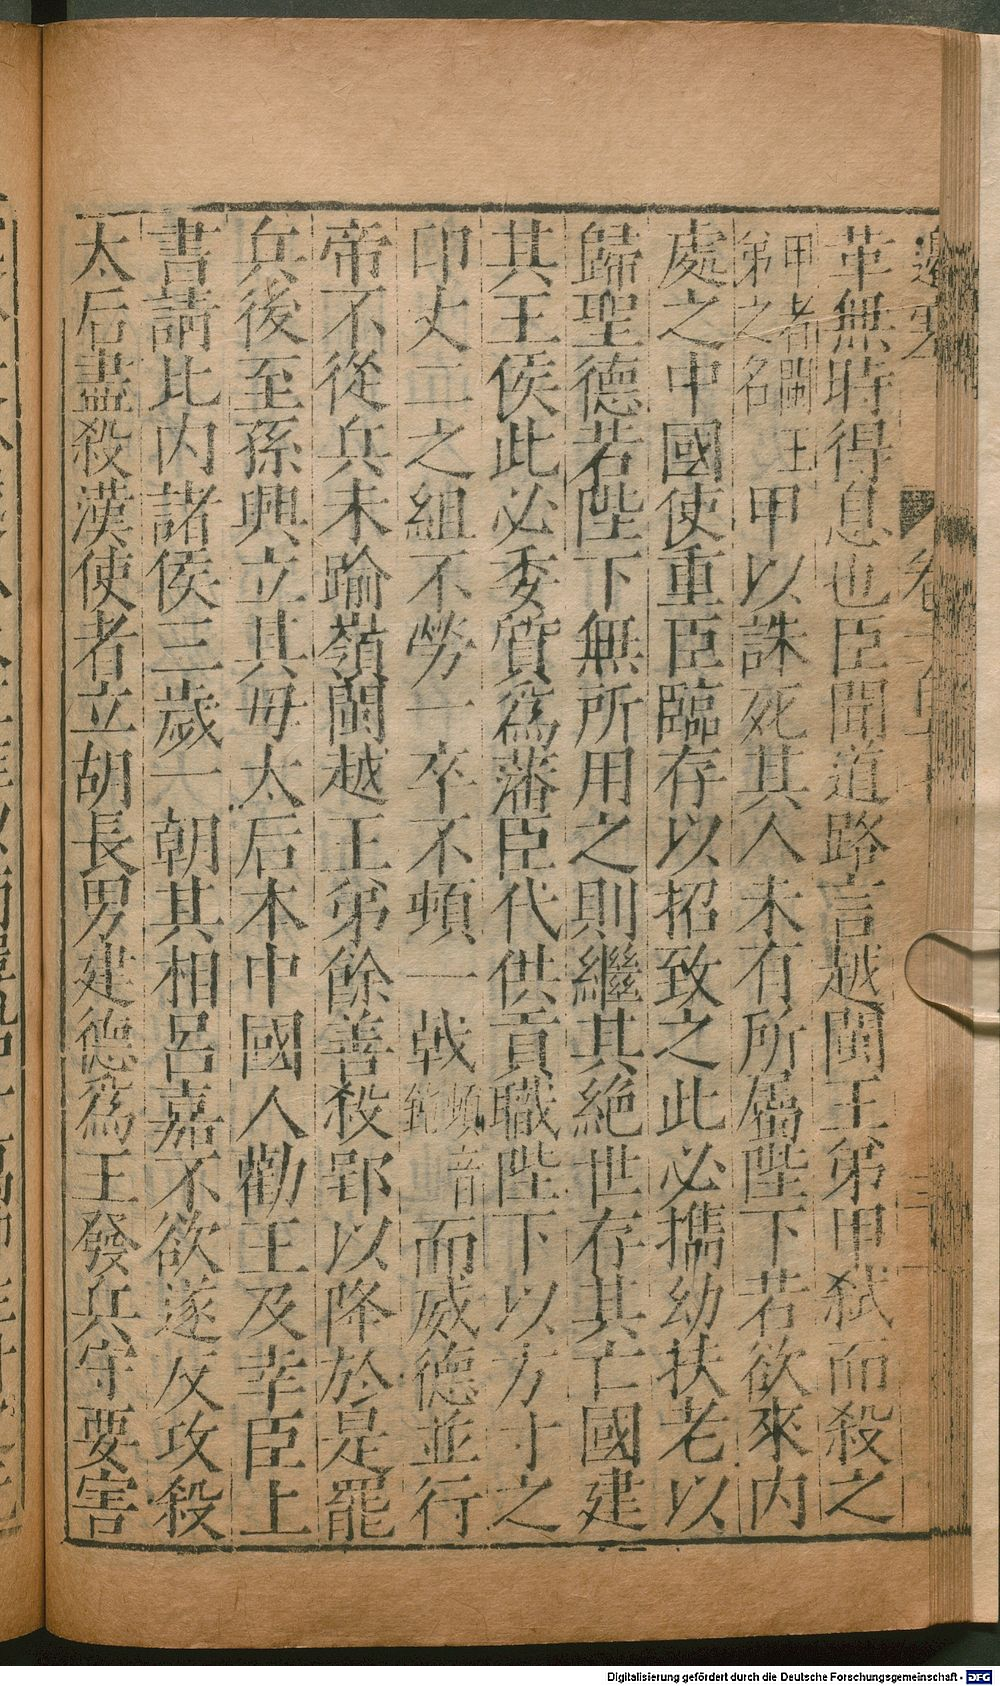 革無時得息也臣聞道路言越閩王弟甲弒而殺之
甲者閩王弟之名甲以誅死其人未有所屬陛下若欲來內
處之中國使重臣臨存以招致之此必攜幼扶老以
歸聖德若陛下無所用之則繼其絕世存其亡國建
其王侯此必委質爲藩臣代供貢職陛下以方寸之
印丈二之組不勞一卒不頓一戟頓音鈍而威德並行
帝不從兵未踰嶺閩越王弟餘善殺郢以降於是罷
兵後至孫興立其母太后本中國人勸王及幸臣上
書請比內諸侯三歲一朝其相呂嘉不欲遂反攻殺
太后盡殺漢使者立胡長男建德爲王發兵守要害
Digitalisierung gefördert durch die Deutsche Forschungsgemeinschaft - DFG